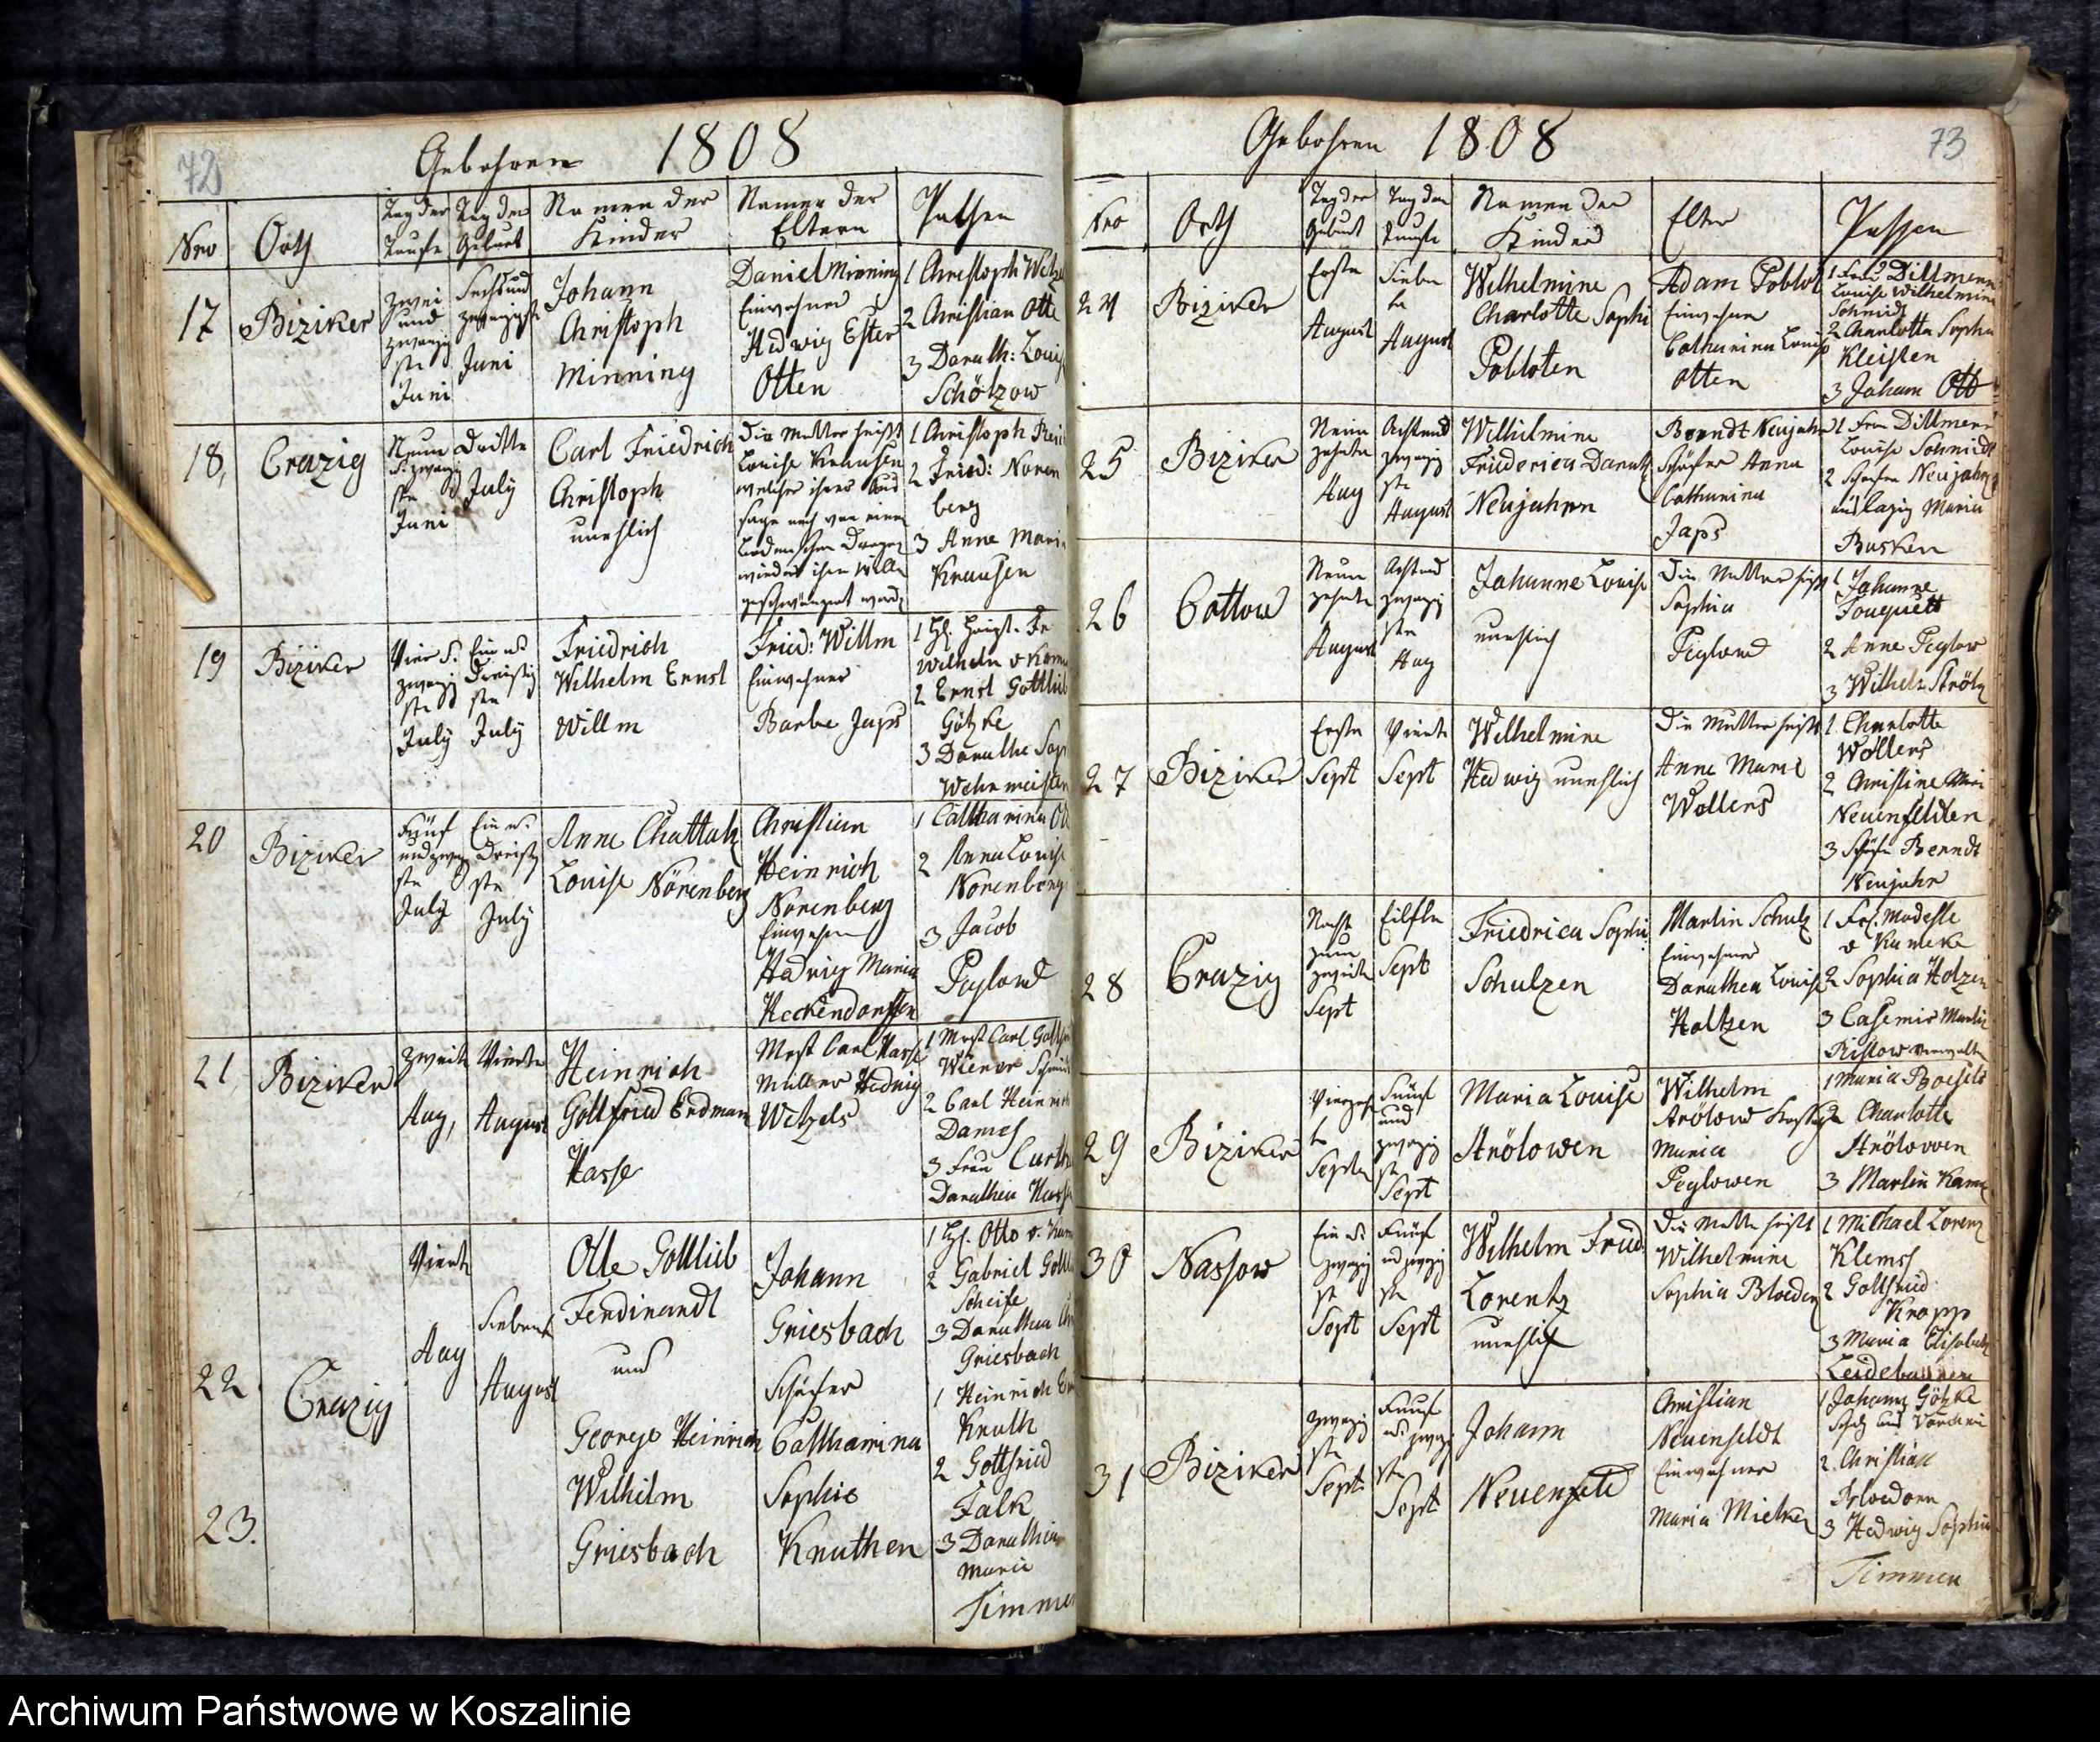 72
Gebohren 1808
Nro
Orth
Tag der
Taufe
Tag der
Geburt
Namen der
Kinder
Namen der
Eltern
Pathen
17
Biziker
Zwei
und
zwanzig
ste
Juni
Sechs und
zwanzigste
Juni
Johann
Christoph
Minning
Daniel Minning
Einwohner
Hedwig Ester
Otten
1 Christoph
2 Christian Otte
3 Dorath: Louis
Schötzow
18,
Crazig
Neun
u. zwanzig
ste
Juni
Dritte
July
Carl Friedrich
Christoph
unehlich
Die Mutter heißt
Louise Krausen
welcher ihrer Aus
sage nach von einem
wieder ihren Willen
geschwängert worden
1 Christoph
2 Fried: Noren
berg
3 Anne Maria
Krausen
19
Biziker
Vier u.
zwanzig
ste
July
Ein u.
Dreißig
ste
July
Friedrich
Wilhelm Ernst
Willm
Fried: Willm
Einwohner
Barbe Japs
1 H.
Wilhelm v Kame
2 Ernst Gottlieb
Götzke
3 Dorathe Sop
Wehrmeister
20
Biziker
Fünf
und zwanzig
ste
July
Ein u.
Dreißig
ste
July
Anne
Louise Nörenberg
Christian
Heinrich
Norenberg
Einwohner
Hedwig Maria
Heckendorffen
1 Catharina
2 Anna Louise
Norenberg
3 Jacob
Peglow
21
Biziker
Zweite
Aug,
Vierte
August
Heinrich
Gottfried Erdmann
Hasse
Mest Carl Hasse
Müller Hedwig
Wetzels
1 Mest Carl Gottfried
2 Carl Heinrich
3 Frau
Dorathea Hasse
22
23.
Crazig
Vierte
Aug
Siebente
August
Otto Gottlieb
Ferdinandt
und
George Heinrich
Wilhelm
Griesbach
Johann
Griesbach
Schäfer
Cattharina
Sophie
Knuthen
1 H. Otto v. Kam
2 Gabriel Gottl
3 Dorathea
Griesbach
1 Heinrich
Knuth
2 Gottfried
Falk
3 Dorathea
Marie
Timmen
73
Gebohren 1808
Nro
Orth
Tag der
Geburt
Tag der
Taufe
Namen der
Kinder
Elter
Pathen
24
Biziker
Erste
August
Sieben
te
August
Wilhelmine
Charlotte Sophi
Pobloten
Adam Poblot
Einwohner
Catharina Louise
Otten
1 Frau Dittmern
Louise Wilhelmine
Schmidt
2 Charlotta Sophia
Kleisten
3 Johann Ott
25
Biziker
Neun
zehnte
Aug
Acht und
zwanzig
ste
August
Wilhelmine
Friederica Dorath
Neujahrn
Berndt Neujahr
Schäfer Anna
Catharina
Japs
1 Frau Dittmern
Louise Schmidt
2 Schäfer Neujahr
aus Lazig Maria
Busken
26
Cottow
Neun
zehnte
August
Acht und
zwanzig
ste
Aug
Johanne Louise
unehlich
Die Mutter heißt
Sophia
Peglow
1 Johanne
Fouquett
2 Anne Peglow
3 Wilhelm
27
Biziker
Erste
Sept
Vierte
Sept
Wilhelmine
Hedwig unehlich
Die Mutter heißt
Anne Marie
Wollers
1 Charlotte
Wollers
2 Christine Mari
Neuenfeldten
3 Schäfer Berndt
Neujahr
28
Crazig
Nacht
zum
zweiten
Sept
Eilfte
Sept
Friedrica Sophi
Schulzen
Martin Schulz
Einwohner
Dorathea Louise
Holtzen
1 Frl. Modeste
v Kameke
2 Sophia Holzen
3 Casemir Martin
Ristow Verwalter
29
Biziker
Vierzehn
te
Septr
Fünf
und
zwanzig
ste
Sept
Maria Louise
Strölowen
Wilhelm
Strölow
Maria
Peglowen
1 Maria
2 Charlotte
Strölowen
3 Martin Kamn
30
Nassow
Ein u.
zwanzig
ste
Sept
Fünf
und zwanzig
ste
Sept
Wilhelm Fried.
Lorentz
unehlich
Die Mutter heißt
Wilhelmine
Sophia Bloeden
1 Michael Lorenz
Klems
2 Gottfried
Knopp
3 Maria Elisabeth
31
Biziker
Zwanzig
ste
Sept
Fünf
und zwanzig
ste
Sept
Johann
Neuenfeld
Christian
Neuenfeldt
Einwohner
Maria Mielken
1 Johann Götzke
2. Christian
Bloedorn
3 Hedwig Sophia
Timmen
Archiwum Państwowe w Koszalinie